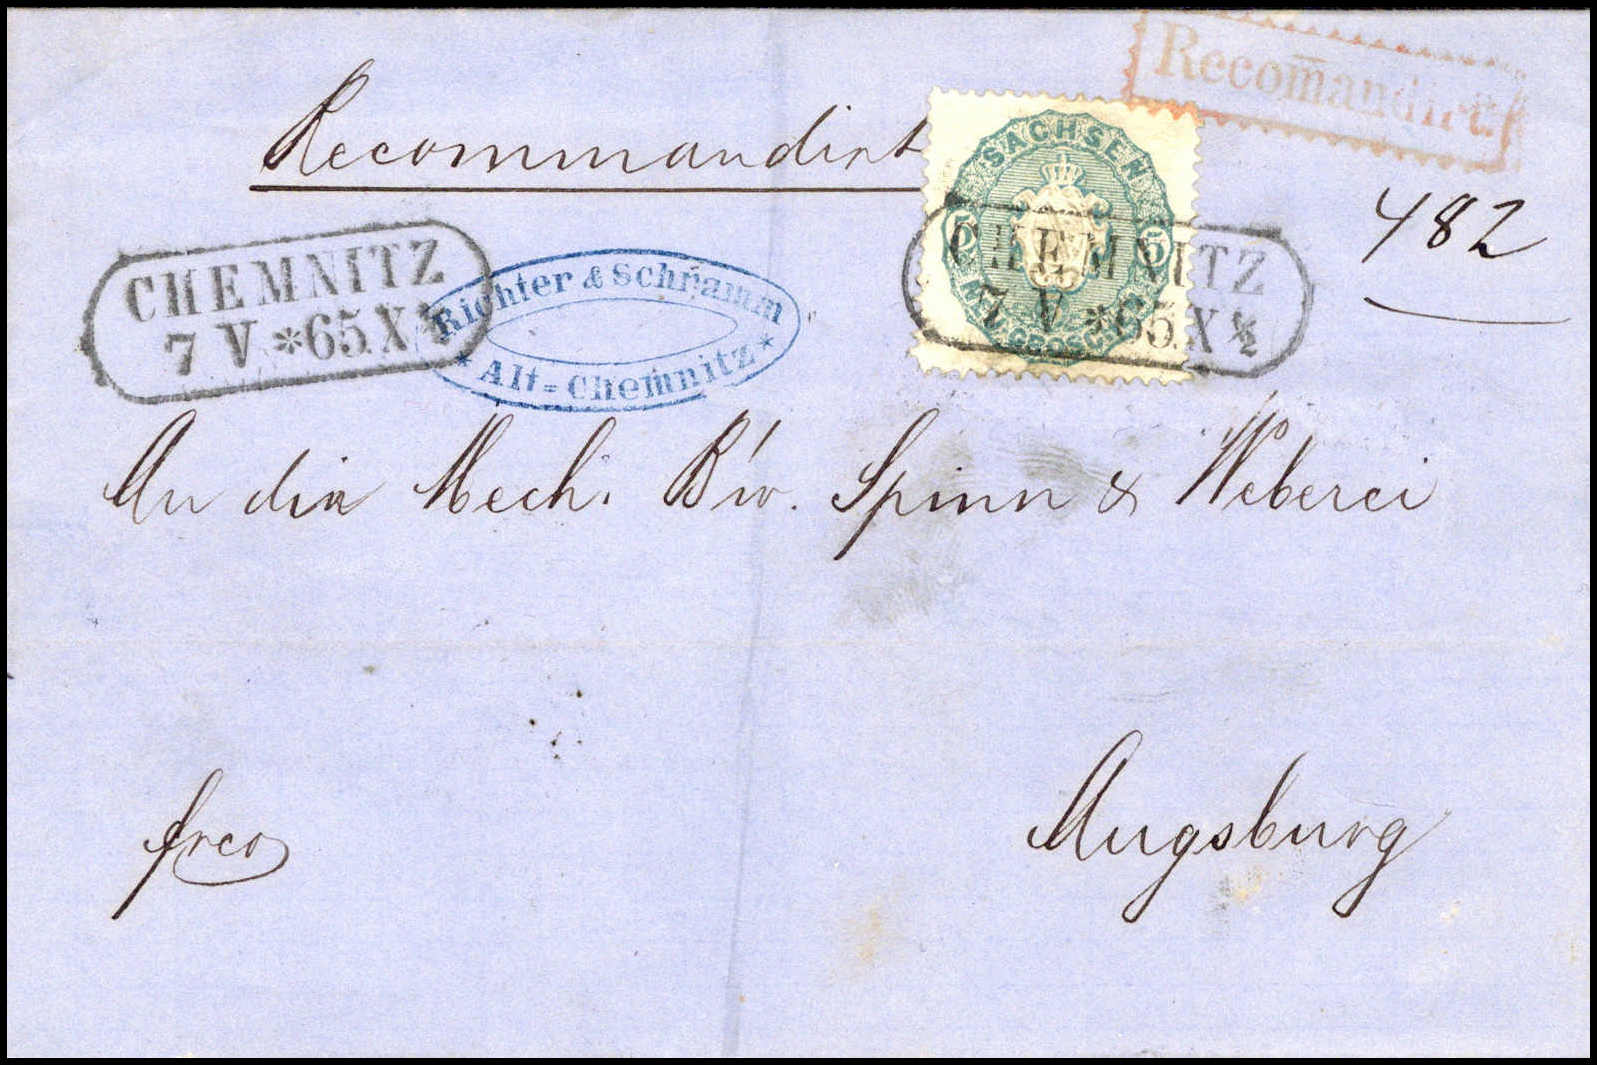 Recom̄andirt.
Recommandirt
SACHSEN
5 5
NEU-GROSCH.
482
CHEMNITZ
7 V *65 X ½
CHEMNITZ
7 V *65 X ½
Richter & Schramm
* Alt=Chemnitz *
An die Mech. B'w. Spinn & Weberei
frco
Augsburg